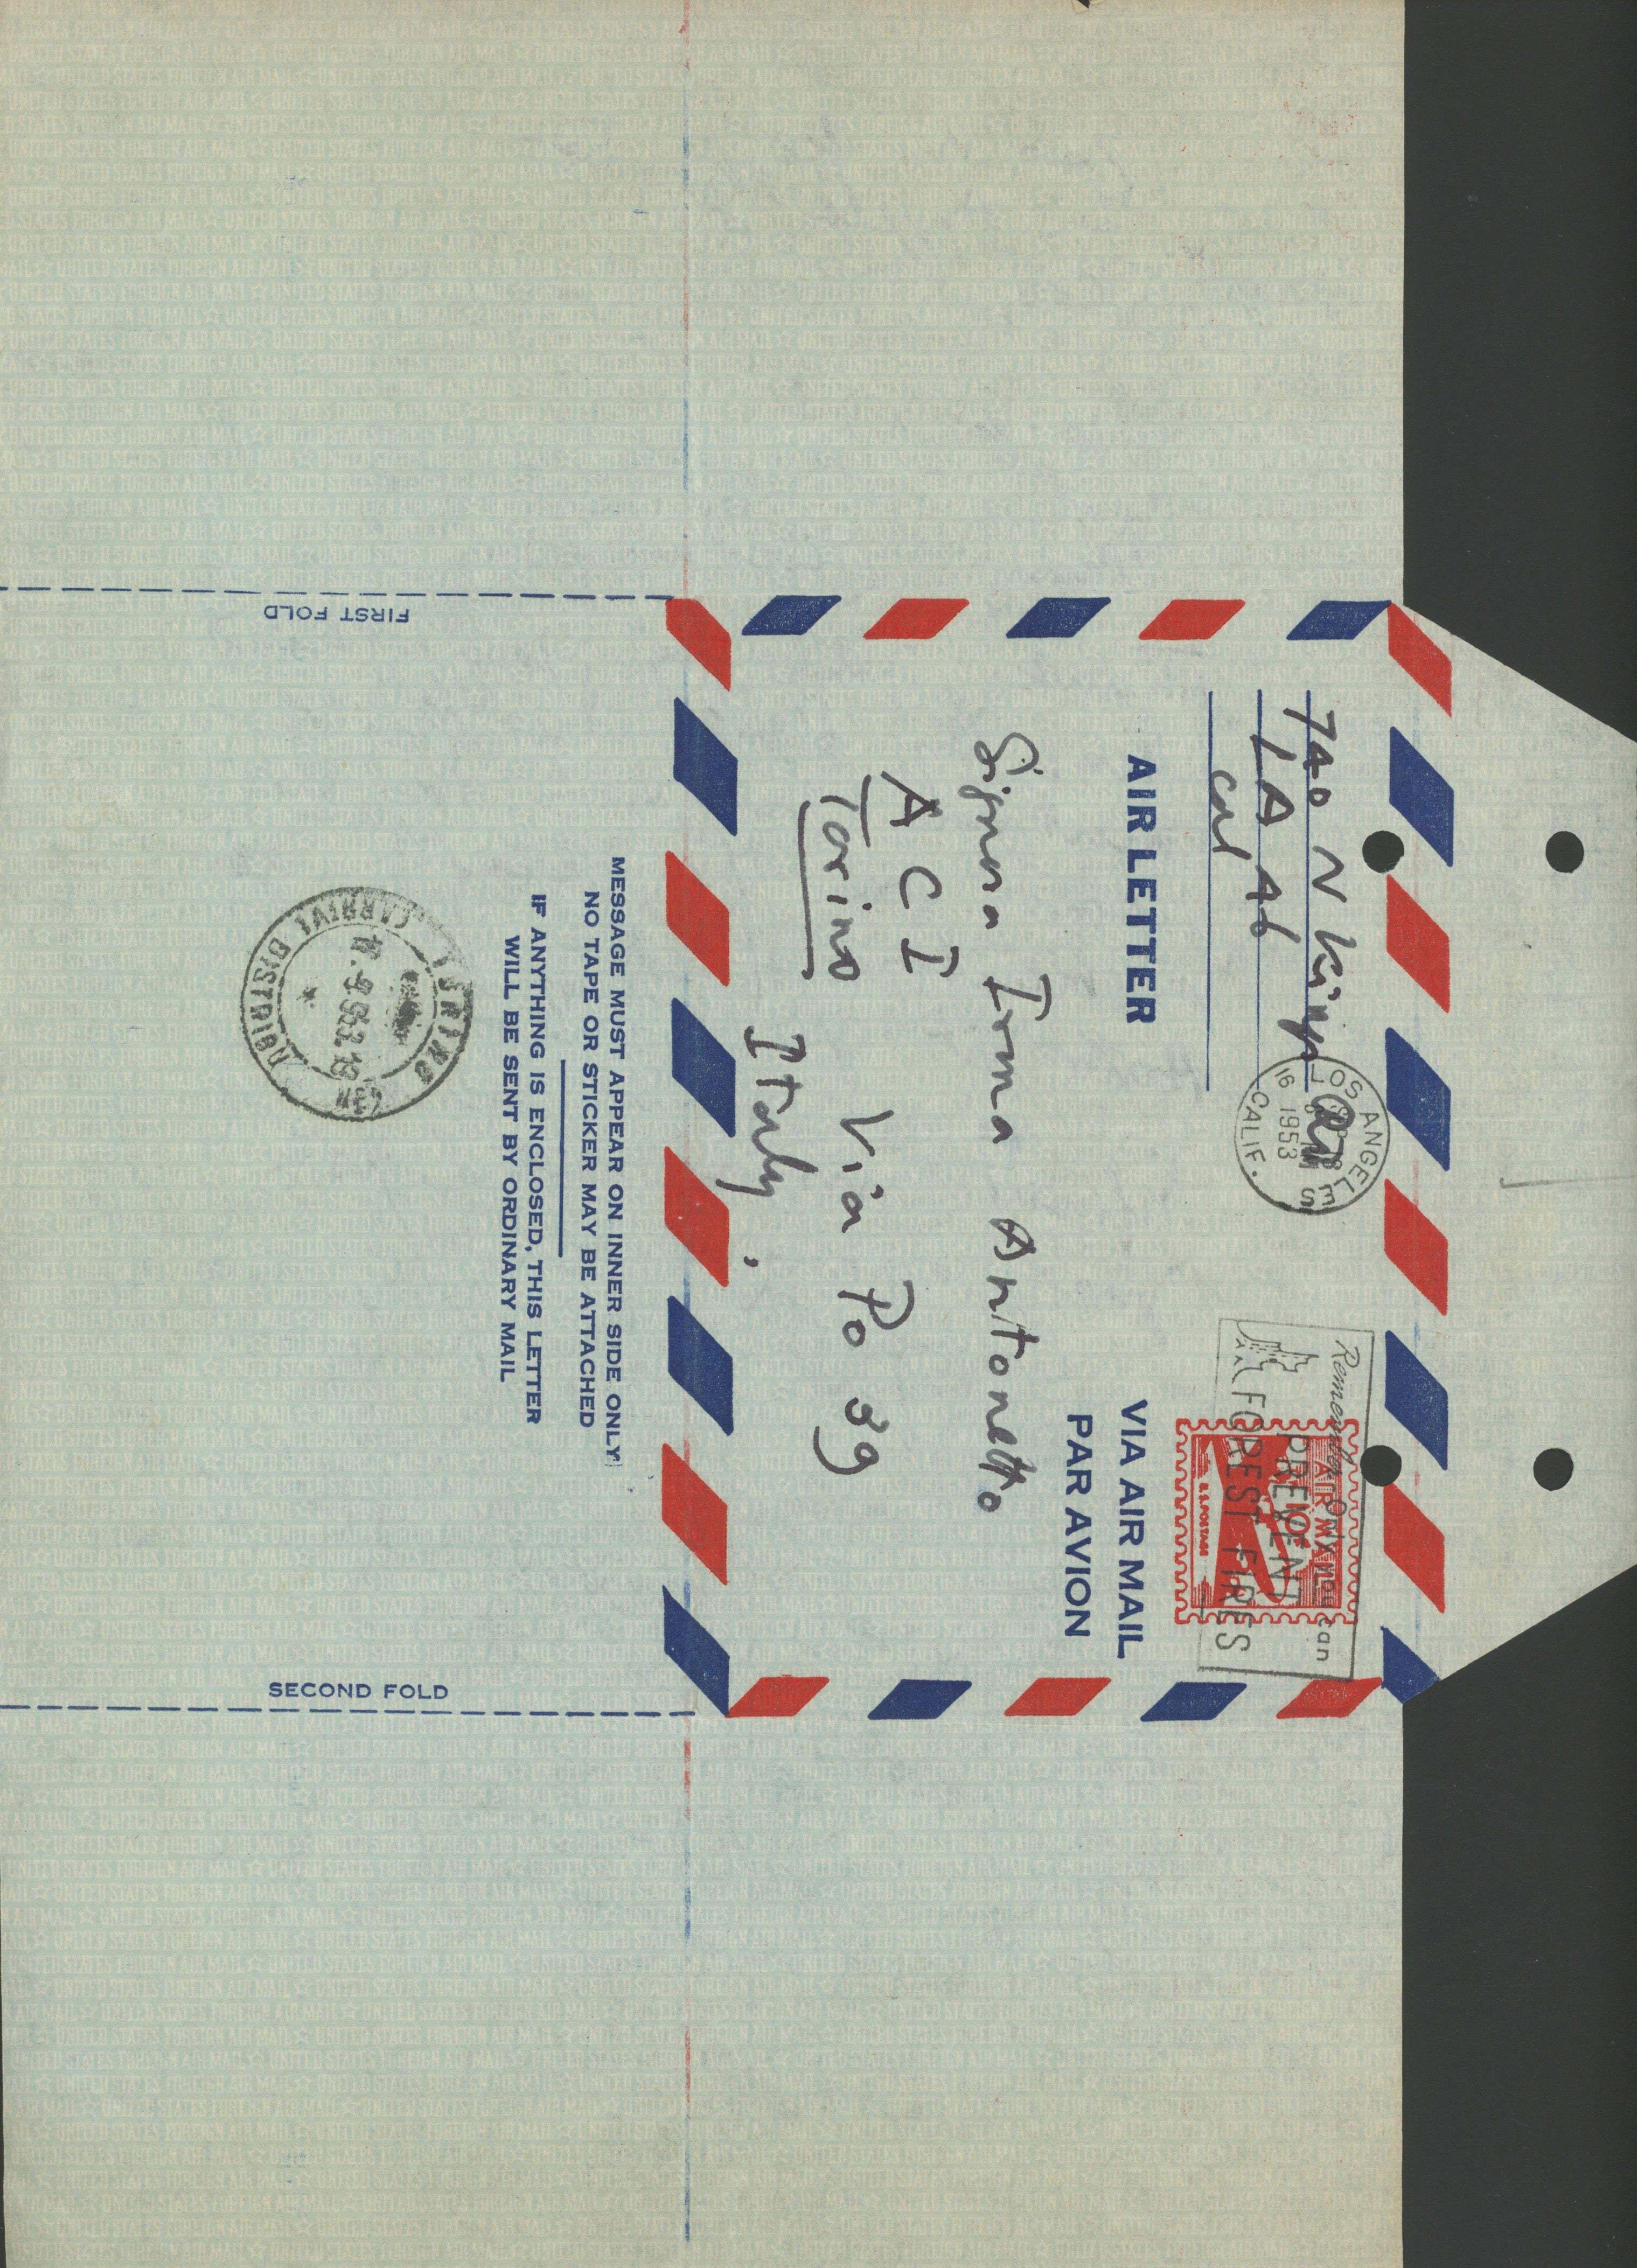 740 N Kings Rd
LA 46
Cal
LOS ANGELES
16
1953
CALIF.
Remember Only you can
PREVENT
FOREST FIRES
AIR MAIL
10¢
U.S. POSTAGE
AIR LETTER
VIA AIR MAIL
PAR AVION
Signora Irma Antonetto
A C I
Torino Via Po 39
Italy
MESSAGE MUST APPEAR ON INNER SIDE ONLY
NO TAPE OR STICKER MAY BE ATTACHED
IF ANYTHING IS ENCLOSED, THIS LETTER
WILL BE SENT BY ORDINARY MAIL
TORINO
ARRIVI DISTRIBUZ
FIRST FOLD
SECOND FOLD
UNITED STATES FOREIGN AIR MAIL